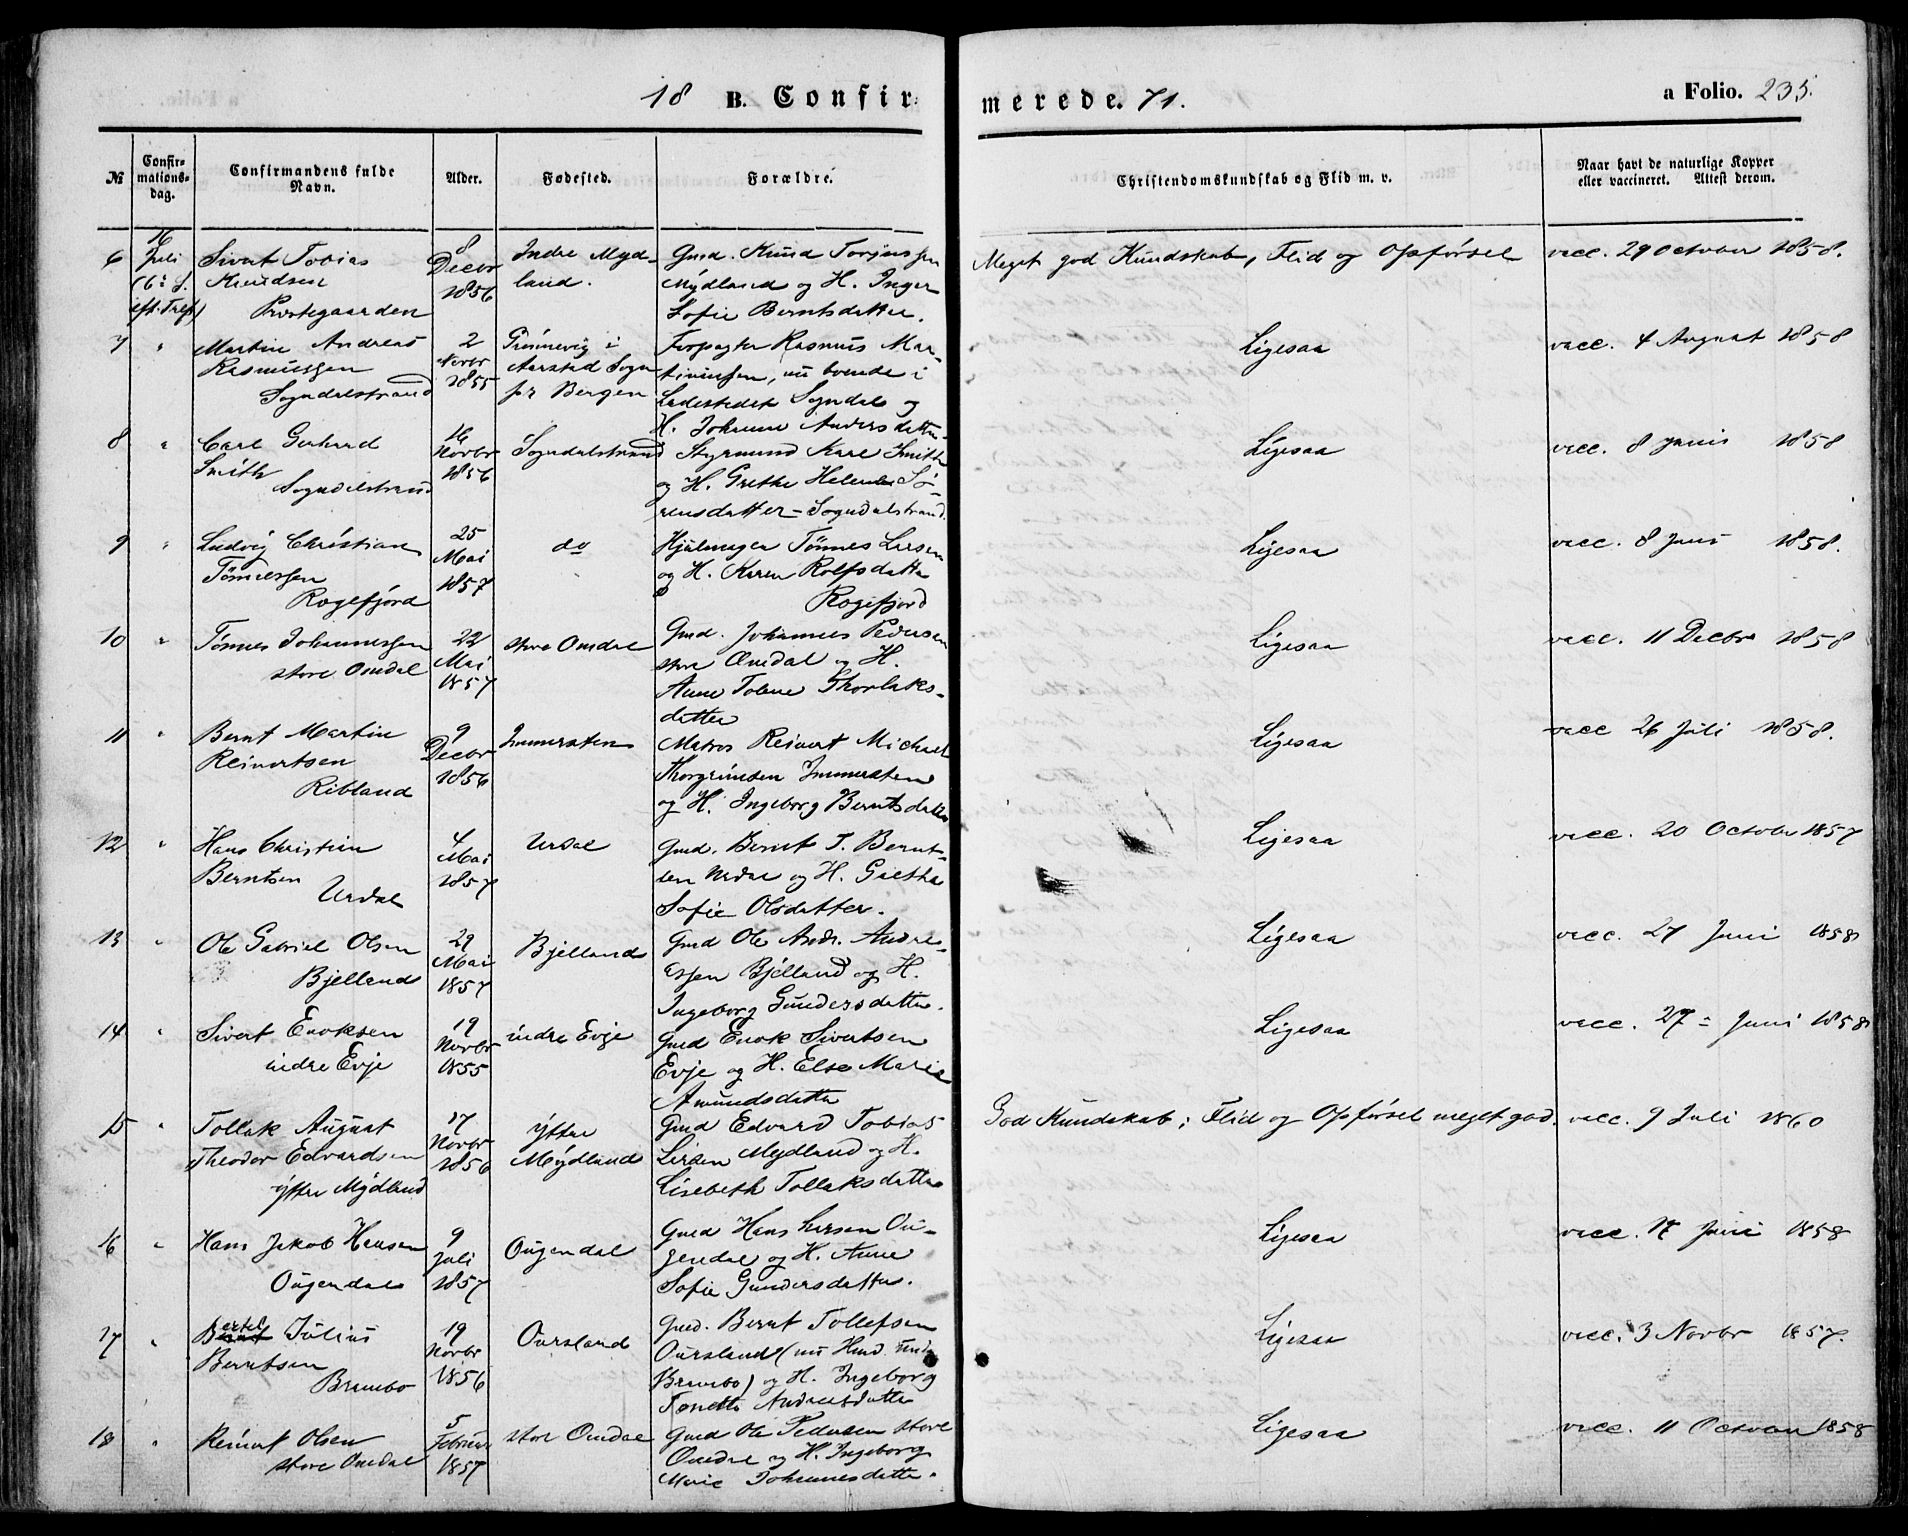 18 B. Confir-
merede. 71.
a Folio. 235.
№
Confir-
mations-
dag.
Confirmandens fulde
Navn.
Alder.
Fødested.
Forældre.
Christendomskundskab og Flid m. v.
Naar havt de naturlige Kopper
eller vaccineret. Attest derom.
6
16
Juli
(6te S.
eft. Tref)
Sivert Tobias
Knudsen
Præstegaarden
8
Decbr
1856
Indre Myd-
land.
Gmd. Knud Torjussen
Mydland og H. Inger
Sofie Berntsdatter.
Meget god Kundskab, Flid og Opførsel
vacc. 29 October 1858.
7
"
Martin Andreas
Rasmussen
Sogndalstrand
2
Novbr
1855
i
Aarstad Sogn
pr Bergen
Forpagter Rasmus Mar-
tinussen, nu boende i
Ladestedet Sogndal og
H. Johanne Andersdatter
Ligesaa
vacc. 4 August 1858
8
"
Carl Gerhard
Smith
Sogndalstrand
16
Novbr
1856
Sogndalstrand
Styrmand Karl Smith
og H. Grethe Helene Sö-
rensdatter - Sogndalstrand.
Ligesaa
vacc. 8 Junis 1858
9
"
Ludvig Christian
Tønnessen
Rægefjord
25
Mai
1857
do
Tönnes Larsen
og H. Karen Rolfsdatter
Rægefjord
Ligesaa
vacc. 8 Juni 1858.
10
"
Tønnes Johannessen
store Omdal
22
Mai
1857
store Omdal
Gmd. Johannes Pedersen
store Omdal og H.
Anne Tolene Thorlaks-
datter
Ligesaa
vacc. 11 Decbr 1858
11
"
Bernt Martin
Reinertsen
Ribland
9
Decbr
1856
Immersten
Matros Reinert Michael
Thorgrimsen Immersten
og H. Ingeborg Berntsdatter
Ligesaa
vacc 26 Juli 1858.
12
"
Hans Christian
Berntsen
Urdal
4
Mai
1857
Urdal
Gmd. Bernt T. Bernt-
sen Urdal og H. Grethe
Sofie Olsdatter.
Ligesaa
vacc. 20 October 1857
13
"
Ole Gabriel Olsen
Bjelland
29
Mai
1857
Bjelland
Gmd Ole Andr. Andre-
essen Bjelland og H.
Ingeborg Gundersdatter.
Ligesaa
vacc. 27 Juni 1858
14
"
Sivert Enoksen
indre Evje
19
Novbr
1855
indre Evje
Gmd Enok Sivertsen
Evje og H. Else Marie
Amundsdatter
Ligesaa
vacc. 27 = Juni 1858
15
"
Tollak August
Theodor Edvardsen
yttre Mydland
17
Novbr
1856
yttre
Mydland
Gmd Edvard Tobias
Larsen Mydland og H.
Lisebeth Tollaksdatter
God Kundskab; Flid og Opførsel meget god.
vacc. 9 Juli 1860
16
"
Hans Jakob Hansen
Ougendal
9
Juli
1857
Ougendal
Gmd Hans Larsen Ou-
gendal og H. Anne
Sofie Gundersdatter.
Ligesaa
vacc. 17 Juni 1858
17
"
Bertel Julius
Berntsen
Brambo
19
Novbr
1856
Oursland
Gmd. Bernt Tollefsen
Oursland (nu Hmd. und.
Brambo) og H. Ingeborg
Tonette Andreasdatter
Ligesaa
vacc. 3 Novbr 1857.
18
"
Reinert Olsen
store Omdal
5
Februar
1857
store Omdal
Gmd Ole Pedersen store
Omdal og H. Ingeborg
Marie Johannesdatter.
Ligesaa
vacc. 11 October 1858